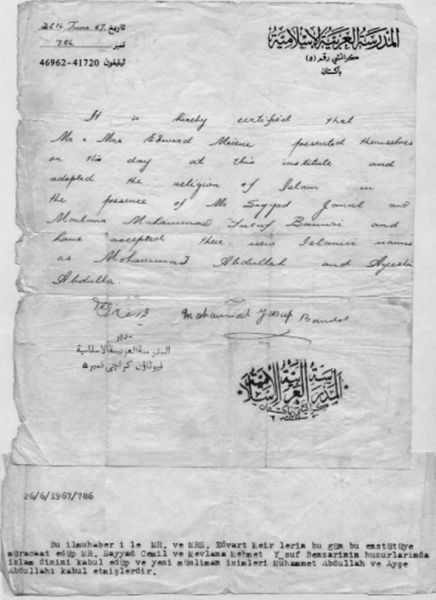 المدرسة العربية الاسلامية
كراتشي رقم (٥)
پاکستان
تاريخ 26th June 67.
نمبر 786
ٹیلیفون 41720-46962
It is hereby certified that
Mr & Mrs Edward Meiene presented themselves
on this day at this institute and
adopted the religion of Islam in
the presence of Mr Sayyad Jamil and
Moulana Mohammad Yusuf Bannri and
have accepted their new Islamic names
as Mohammad Abdullah and Ayesha
Abdulla
Mohammad Yusuf
مدير
المدرسة العربية الاسلامية
نیوٹاؤن کراچی نمبر ۵
المدرسة العربية الاسلامية
كراتشي پاکستان
26/6/1967/786
Bu ilmuhaber i le MR. ve MRS. Edvart Meir lerin bu gün bu enstütüye
müracaat edüp MR. Sayyad Cemil ve Mevlana Mehmet Y suf Benzarinin huzurlarında
islam dinimi kabul edüp ve yeni müsliman isimleri Mühammet Abdullah ve Ayşe
Abdullahı kabul etmişlerdir.